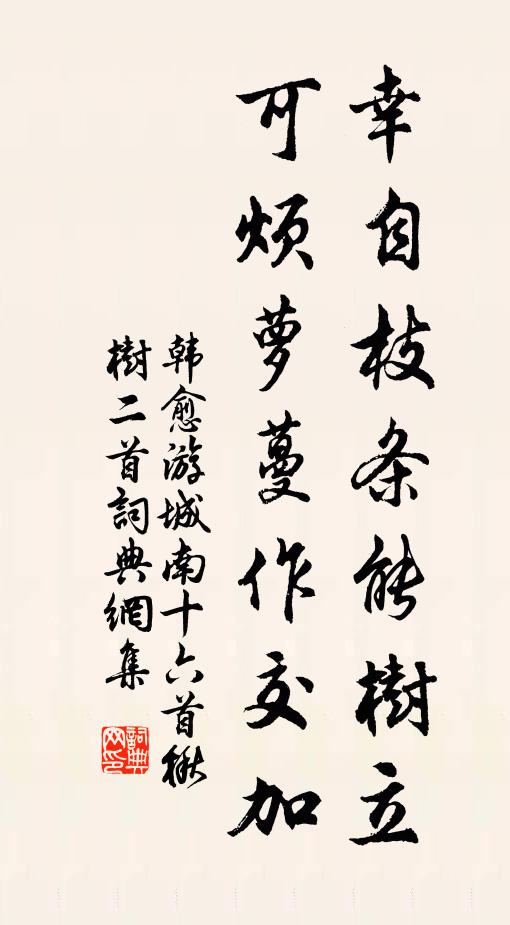 幸自枝条能樹立
可煩夢蔓作交加
韩愈游城南十六首楸
樹二首詞典網集
詞典网印